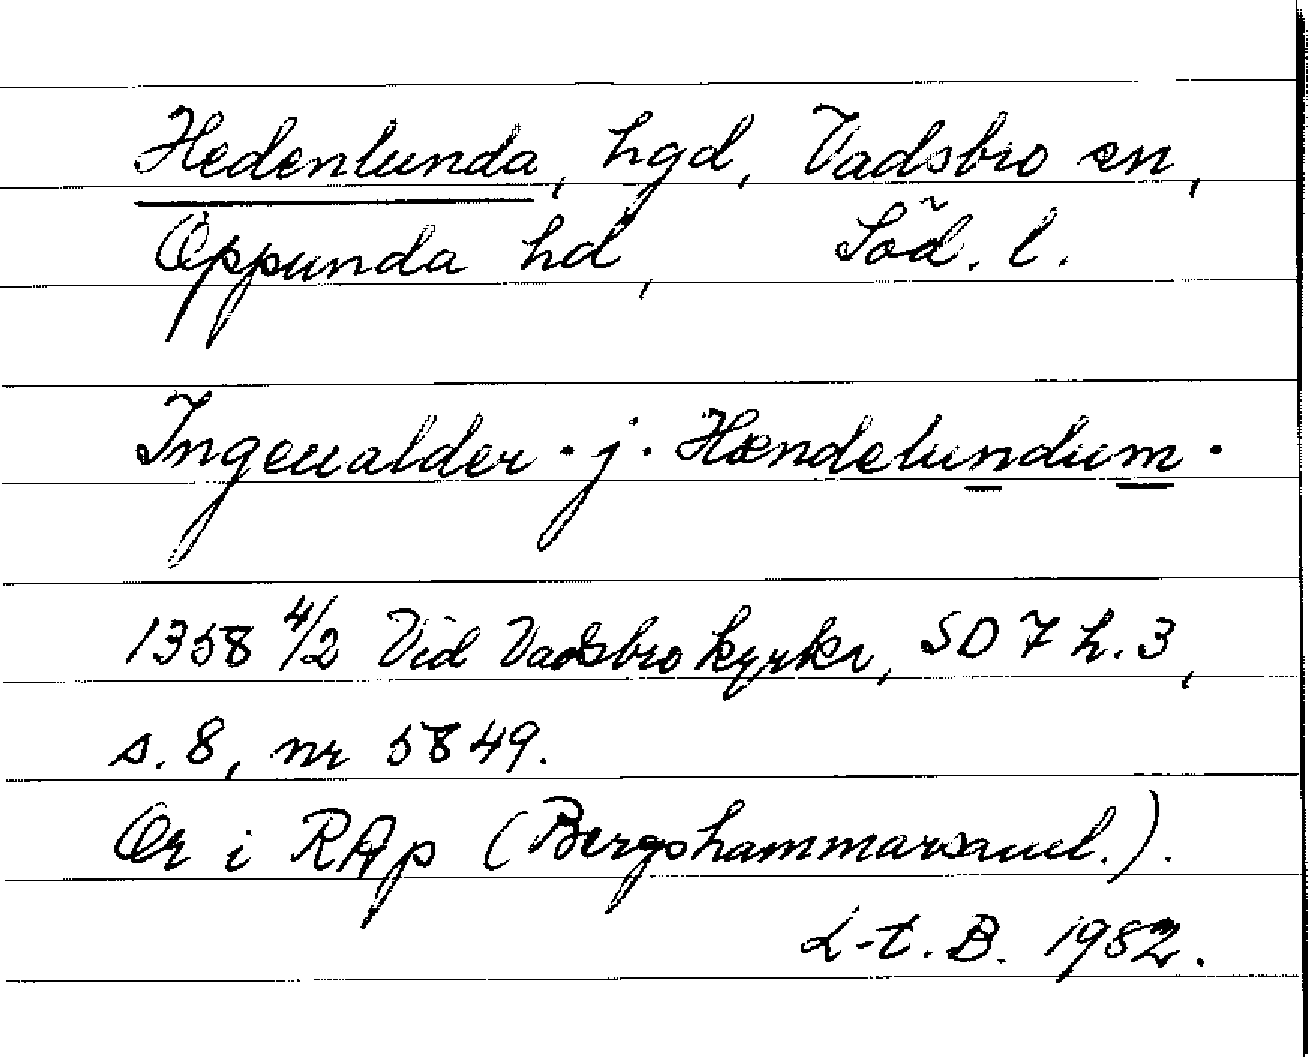 Hedenlunda, hgd, Vadsbro sn,
Oppunda hd, Söd. l.
Ingeualder · j · Hændelundum ·
1358 4/2 Vid Vadsbro kyrka, SD 7 h. 3,
s. 8, nr 5849.
Or i RAp (Bergshammarsaml.).
L-t. B. 1982.